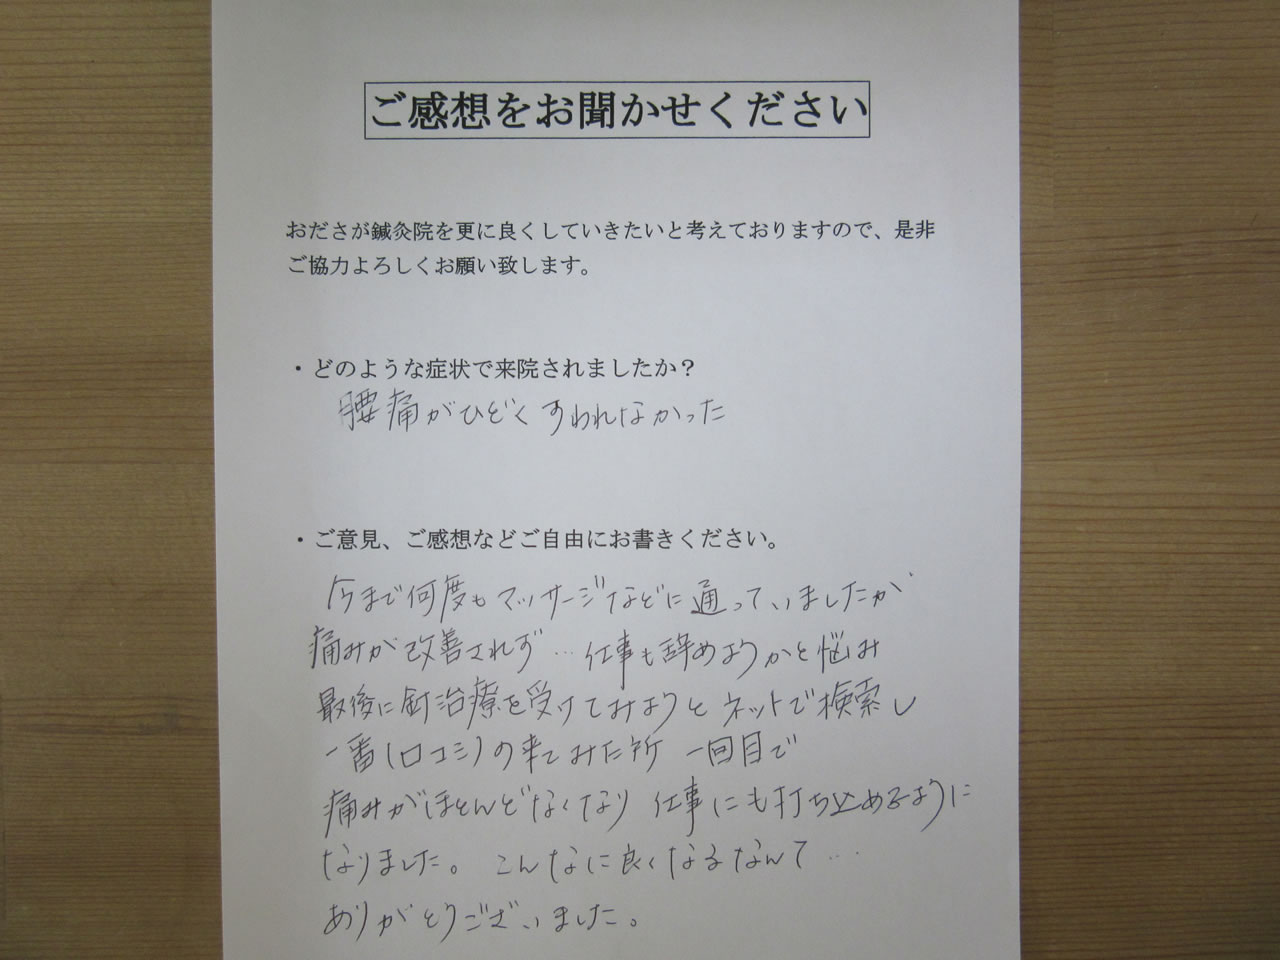 ご感想をお聞かせください
おださが鍼灸院を更に良くしていきたいと考えておりますので、是非
ご協力よろしくお願い致します。
・どのような症状で来院されましたか？
腰痛がひどく すわれなかった
・ご意見、ご感想などご自由にお書きください。
今まで何度もマッサージなどに通っていましたが
痛みが改善されず…仕事も辞めようかと悩み
最後に針治療を受けてみようとネットで検索し
一番(口コミ)の来てみた所 一回目で
痛みがほとんどなくなり 仕事にも打ち込めるように
なりました。 こんなに良くなるなんて…
ありがとうございました。